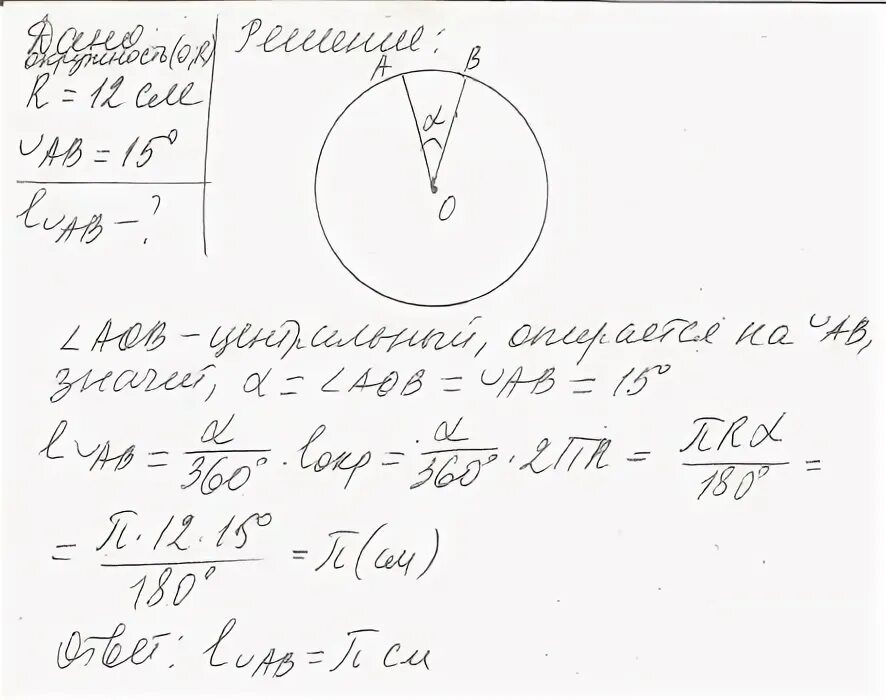 Дано
окружность(O;R)
R = 12 см
◡AB = 15°
l◡AB - ?
Решение:
A B
α
O
∠AOB - центральный, опирается на ◡AB,
значит, α = ∠AOB = ◡AB = 15°
l◡AB = α/360° · lокр = α/360° · 2πR = πRα/180° =
= π·12·15°/180° = π (см)
Ответ: l◡AB = π см